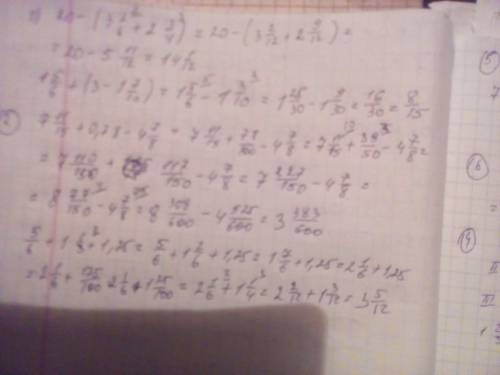 20 - (3 1/6 + 2 3/4) = 20 - (3 2/12 + 2 9/12) =
= 20 - 5 11/12 = 14 1/12
1 5/6 + (3 - 1 7/10) = 1 5/6 - 1 3/10 = 1 25/30 - 1 9/30 = 16/30 = 8/15
7 11/15 + 0,78 - 4 7/8 = 7 11/15 + 78/100 - 4 7/8 = 7 11/15 + 39/50 - 4 7/8 =
= 7 110/150 + 117/150 - 4 7/8 = 7 227/150 - 4 7/8 =
= 8 77/150 - 4 7/8 = 8 308/600 - 4 525/600 = 3 383/600
5/6 + 1 1/3 + 1,25 = 5/6 + 1 2/6 + 1,25 = 1 7/6 + 1,25 = 2 1/6 + 1,25
= 2 1/6 + 125/100 2 1/6 + 1 25/100 = 2 1/6 + 1 1/4 = 2 2/12 + 1 3/12 = 3 5/12
5
7
16
=
14
II
III